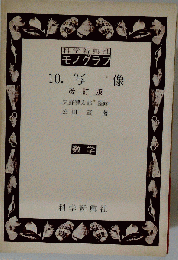 科学新興社
モノグラフ
10. 写像
改訂版
監修
著
数学
科学新興社